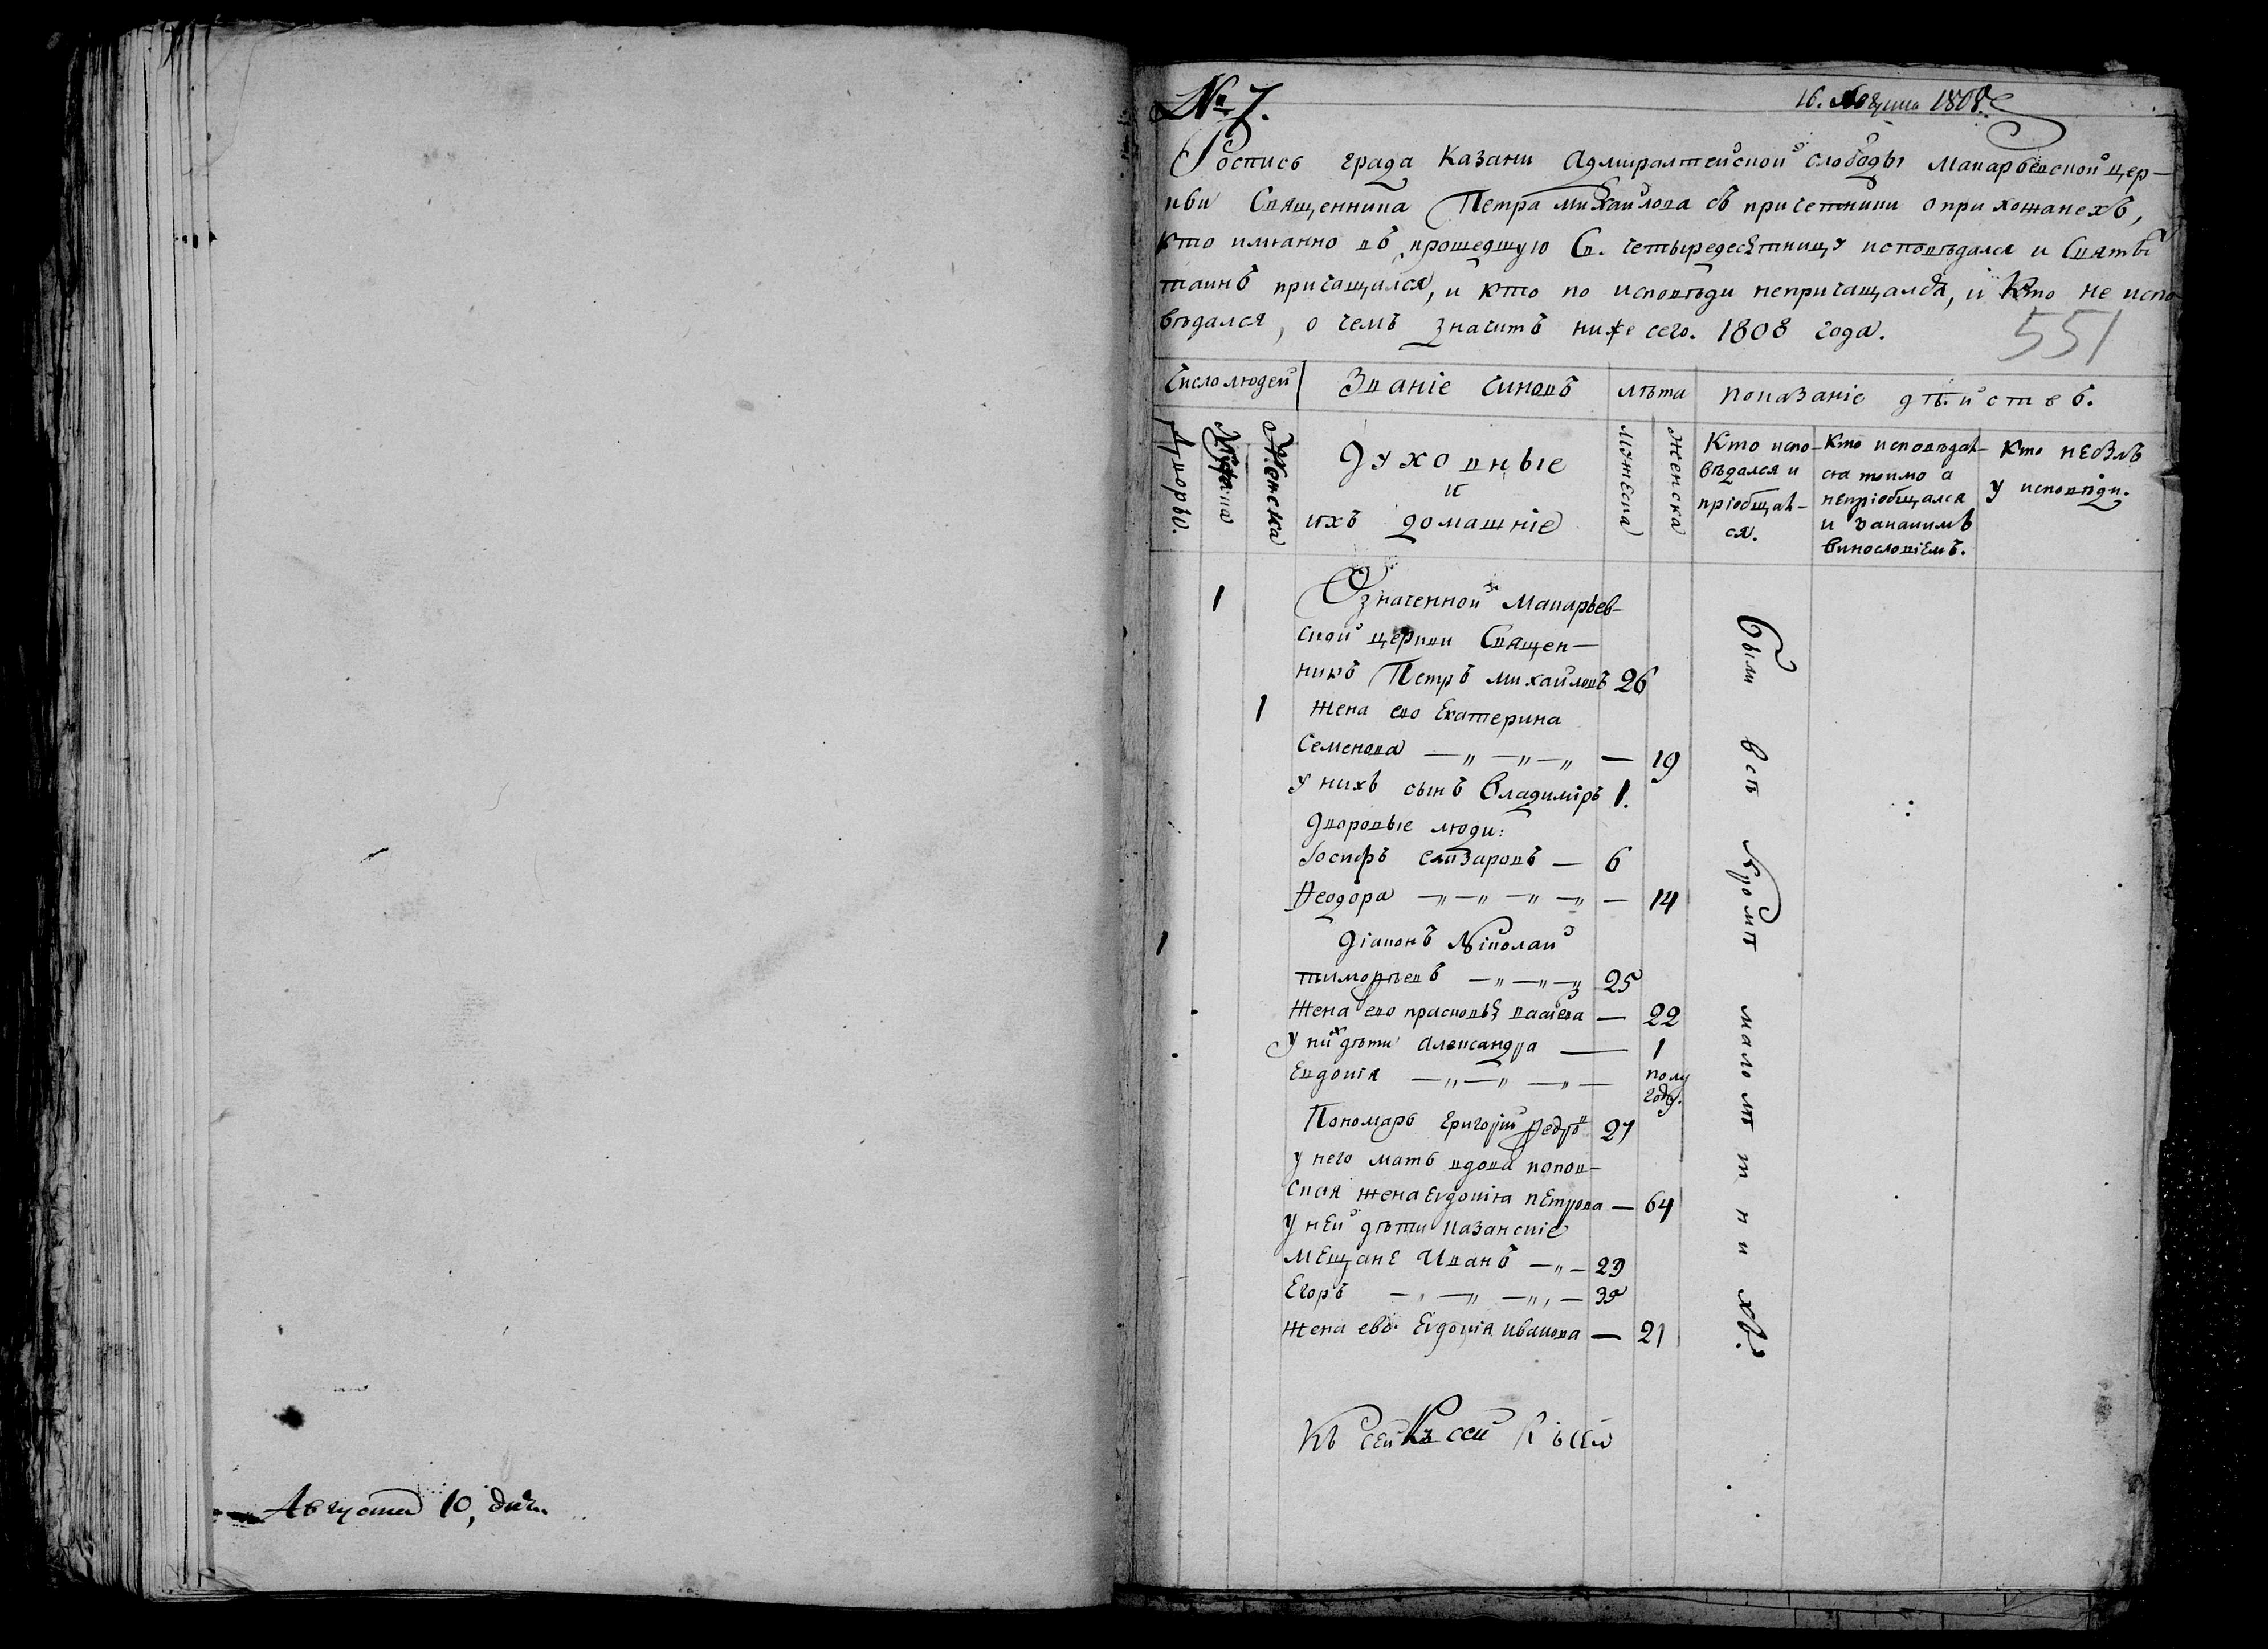 Августа 10, дня.
№ 7.
16. 1808.
Роспись града Казани Адмиралтейской слободы Макарьевской цер-
кви Священника Петра Михайлова съ причетники о прихожанехъ,
кто имянно въ прошедшую Св. четыредесятницу исповѣдался и Святыхъ
таинъ причащался, и кто по исповѣди непричащался, и кто не испо
вѣдался, о чемъ значитъ ниже сего. 1808 года.
551
Число людей
Званіе чиновъ
лѣта
показаніе дѣйствъ.
Дворовъ.
Мужеска
Женска
Духовные
и
ихъ домашніе
мужеска
женска
Кто испо-
вѣдался и
пріобщал-
ся.
Кто исповѣдал-
ся токмо а
непріобщался
и закакимъ
винословіемъ.
Кто небылъ
у исповѣди.
1
Означенной Макарьев-
ской церкви Священ-
никъ Петръ Михайловъ 26
1 жена ево Екатерина
Семенова — 19
у нихъ сынъ Владиміръ 1.
Дворовые люди:
Іосифъ Елизаровъ — 6
Ѳеодора — 14
1 Діаконъ Ніколай
Тимофѣевъ 25
Жена ево прасковья — 22
у них дѣти Александра — 1
Евдокія — полу
году.
Пономарь Григорій Федров 27
у него мать вдова попов-
ская жена Евдокіа Петрова — 64
у ней дѣти казанскіе
мещане Иванъ — 29
Егоръ — 39
жена ево Евдокія Иванова — 21
были всѣ кромѣ малолѣтнихъ.
Къ сей Къ сей Къ сей